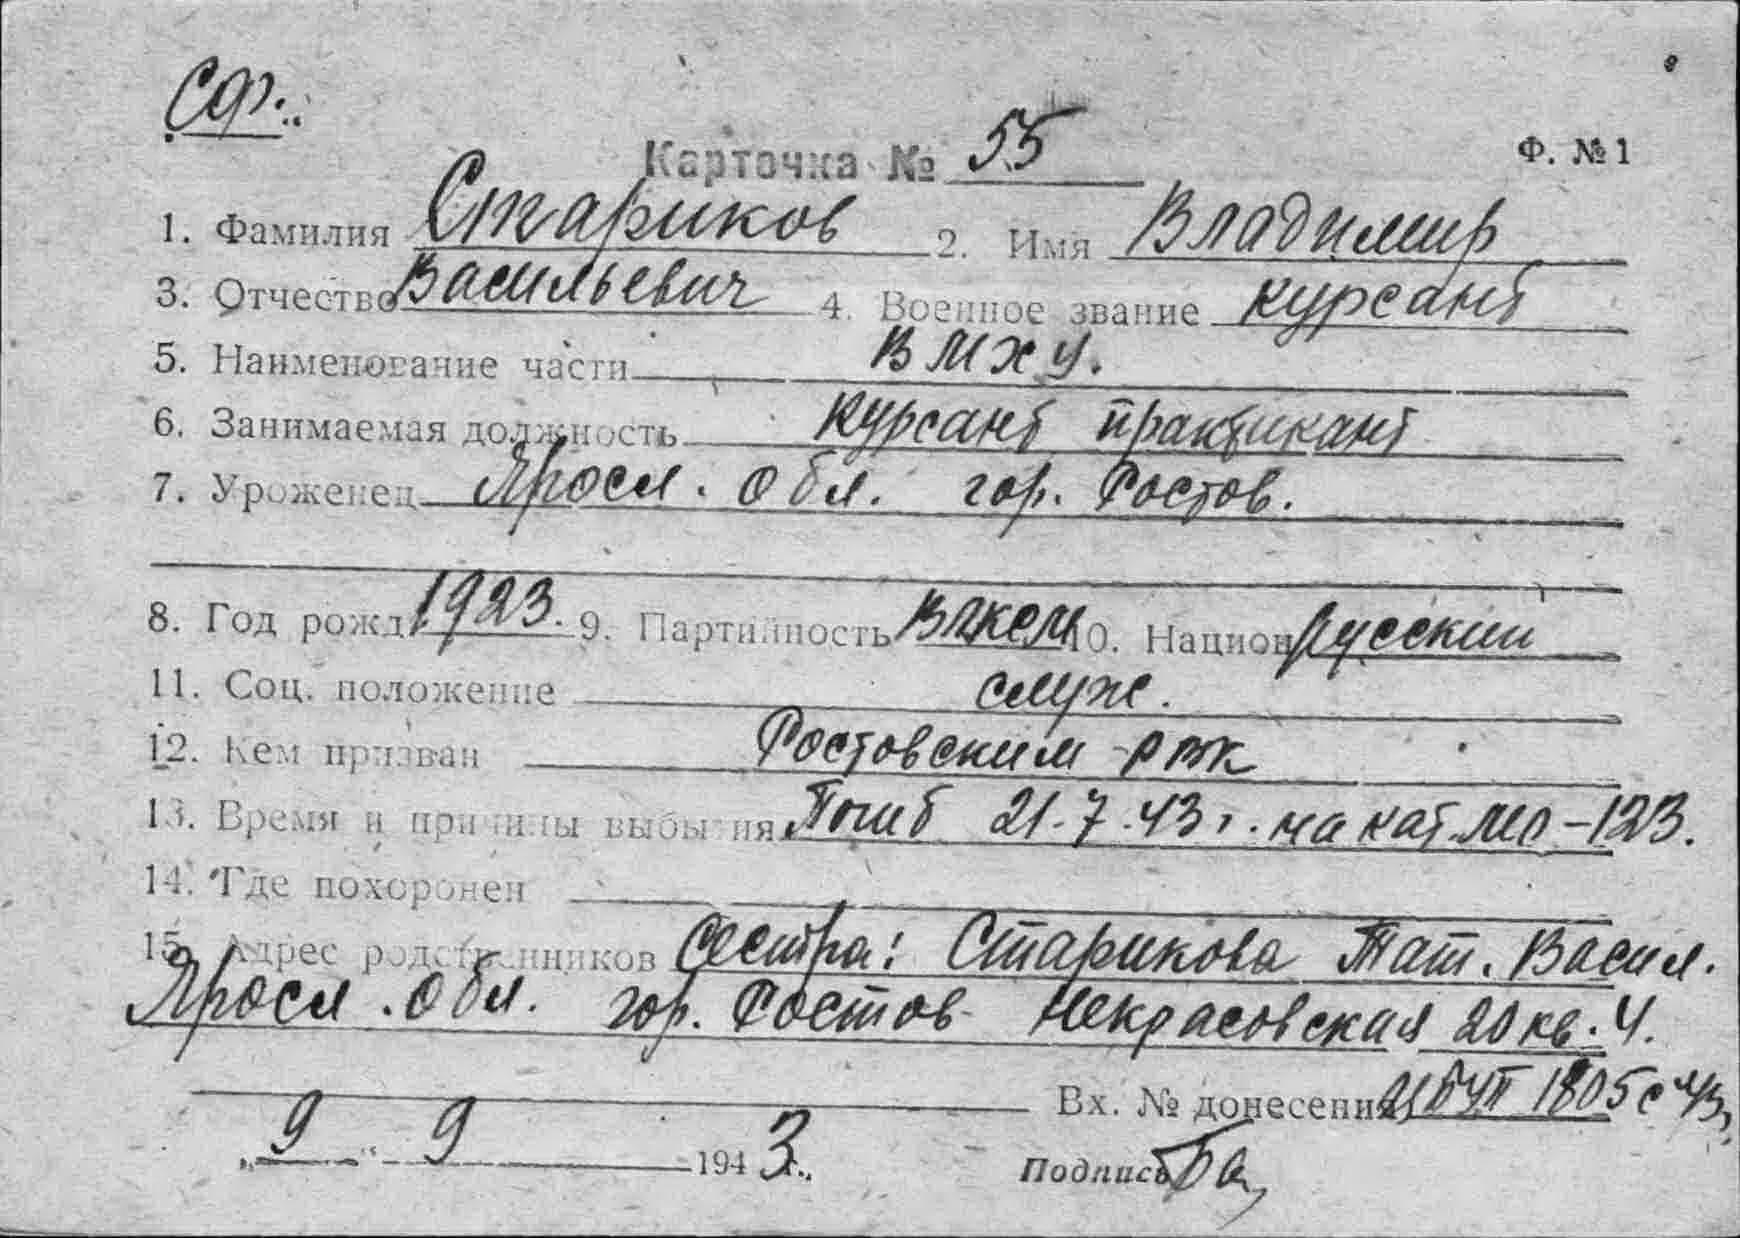 СФ.
Карточка № 55 Ф. № 1
1. Фамилия Стариков 2. Имя Владимир
3. Отчество Васильевич 4. Военное звание курсант
5. Наименование части ВМХУ.
6. Занимаемая должность курсант практикант
7. Уроженец Яросл. обл. гор. Ростов.
8. Год рожд. 1923. 9. Партийность ВЛКСМ 10. Национ. Русский
11. Соц. положение служ.
12. Кем призван Ростовским РВК
13. Время и причины выбытия Погиб 21.7.43 г. на кат. МО-123.
14. Где похоронен
15. Адрес родственников Сестра: Старикова Тат. Васил.
Яросл. обл. гор. Ростов Некрасовская 20 кв. 4.
Вх. № донесения 1805с 43
„ 9 “ 9 1943 г.
Подпись